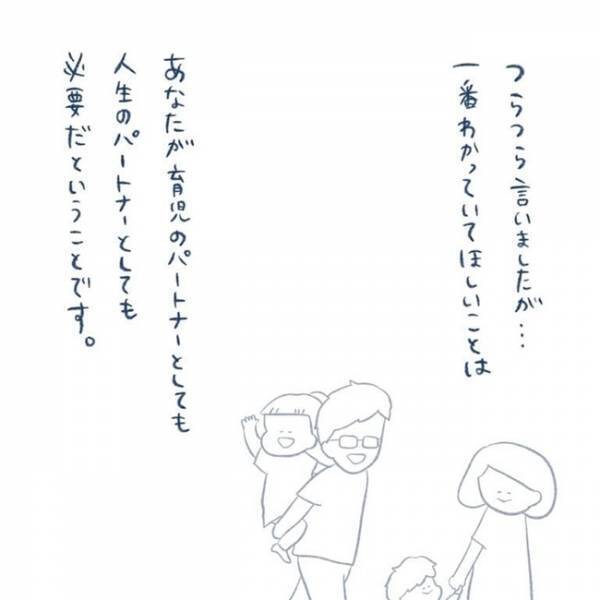 つらつら言いましたが…
一番わかっていてほしいことは
あなたが育児のパートナーとしても
人生のパートナーとしても
必要だということです。